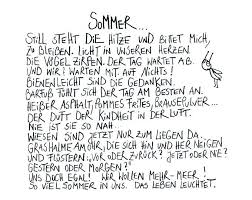 SOMMER...
STILL STEHT DIE HITZE UND BITTET MICH,
ZU BLEIBEN. LICHT IN UNSEREN HERZEN.
DIE VÖGEL ZIRPEN. DER TAG WARTET AB.
UND WIR? WARTEN MIT AUF NICHTS!
BIENENLEICHT SIND DIE GEDANKEN.
BARFUß FÜHLT SICH DER TAG AM BESTEN AN.
HEIßER ASPHALT, POMMES FRITES, BRAUSEPULVER...
DER DUFT DER KINDHEIT IN DER LUFT.
NIE IST SIE SO NAH.
WIESEN SIND JETZT NUR ZUM LIEGEN DA.
GRASHALME AM OHR, DIE SICH HIN UND HER NEIGEN
UND FLÜSTERN: VOR ODER ZURÜCK? JETZT ODER NIE?
GESTERN ODER MORGEN?
UNS DOCH EGAL! WIR WOLLEN MEHR-MEER!
SO VIEL SOMMER IN UNS. DAS LEBEN LEUCHTET.